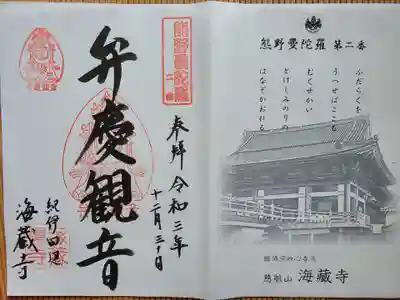 熊野曼陀羅 第二番
ふだらくを
うつせばここも
むくせかい
とけしみのりの
はなぞかおれる
臨済宗妙心寺派
慈航山 海藏寺
熊野曼陀羅
二番
奉拝 令和三年
十二月三十日
弁慶観音
紀伊田辺
海蔵寺